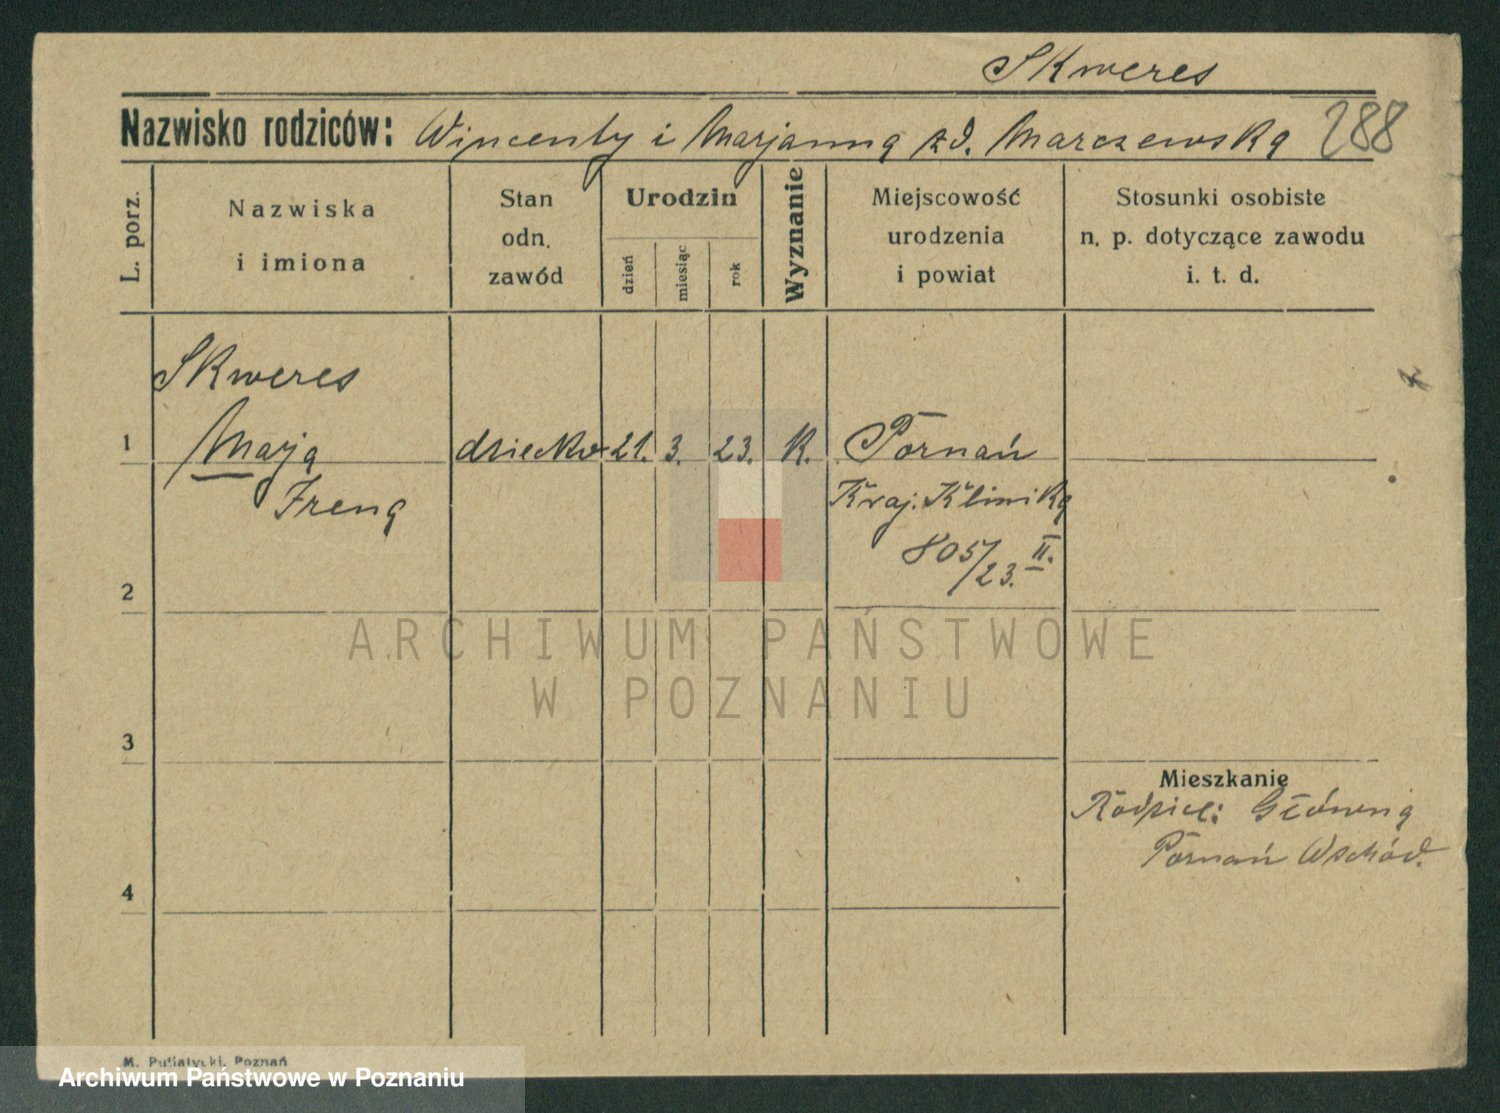 Skweres
Nazwisko rodziców: Wincenty i Marjanna zd. Marczewska 288
L. porz.
Nazwiska
i imiona
Stan
odn.
zawód
Urodzin
dzień
miesiąc
rok
Wyznanie
Miejscowość
urodzenia
i powiat
Stosunki osobiste
n. p. dotyczące zawodu
i. t. d.
Skweres
1 Marja dziecko 21. 3. 23. K. Poznań
Irena Kraj. Klinika
805/23. II.
2
ARCHIWUM PAŃSTWOWE
W POZNANIU
3
Mieszkanie
Rodzice: Główna
Poznań Wschód.
4
M. Putiatycki, Poznań
Archiwum Państwowe w Poznaniu